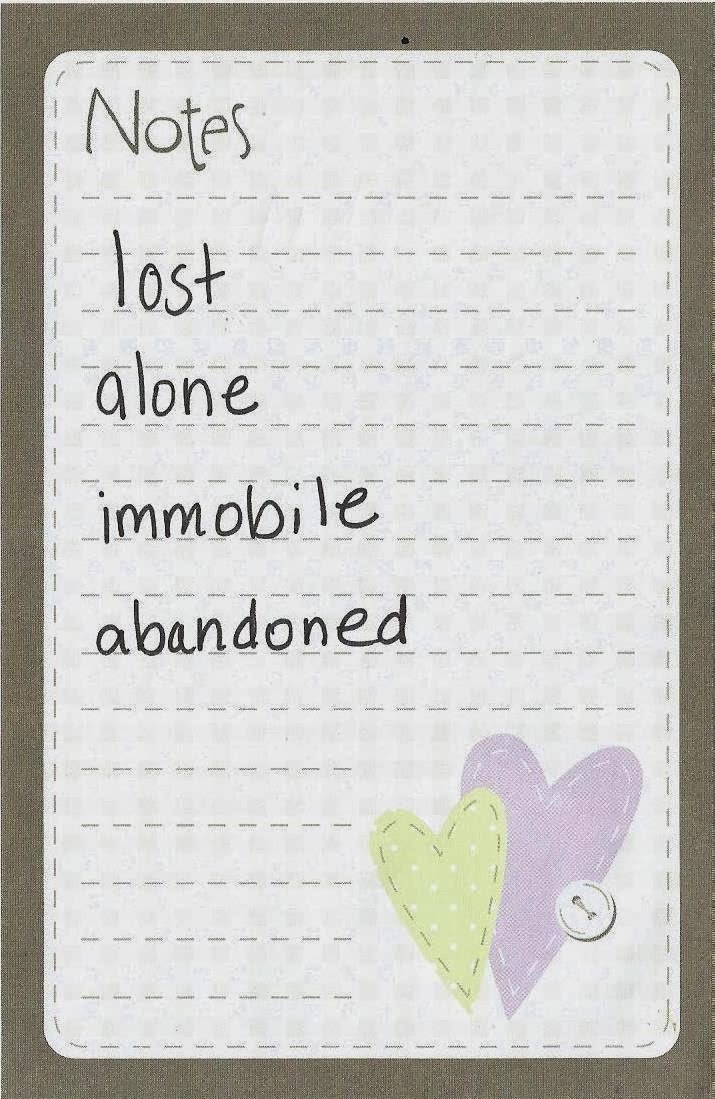 Notes
lost
alone
immobile
abandoned